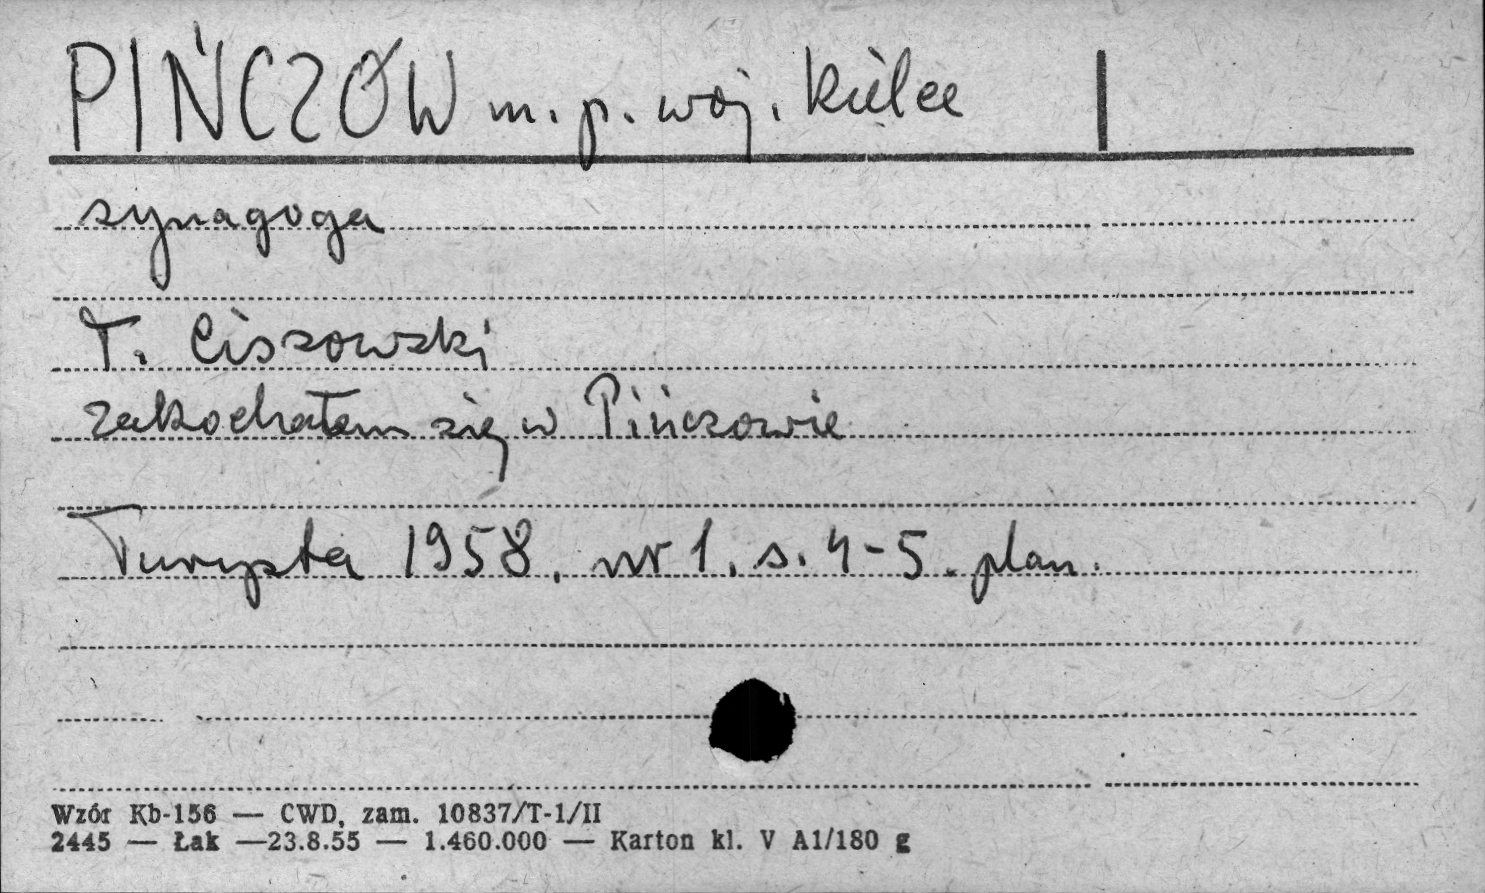 PIŃCZÓW m. p. woj. Kielce
synagoga
T. Ciszowski
zakochałem się w Pińczowie
Turysta 1958. nr 1. s. 4-5. plan.
Wzór Kb-156 — CWD, zam. 10837/T-1/II
2445 — Łak —23.8.55 — 1.460.000 — Karton kl. V A1/180 g